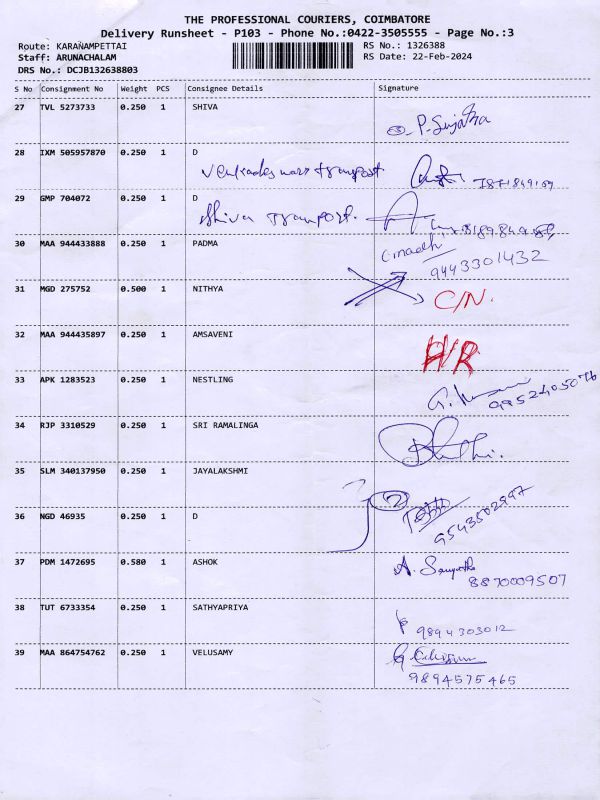 THE PROFESSIONAL COURIERS, COIMBATORE
Delivery Runsheet - P103 - Phone No.:0422-3505555 - Page No.:3
Route: KARANAMPETTAI
RS No.: 1326388
Staff: ARUNACHALAM
RS Date: 22-Feb-2024
DRS No.: DCJB132638803
S No Consignment No Weight PCS Consignee Details Signature
27 TVL 5273733 0.250 1 SHIVA
P. Sujatha
28 IXM 505957870 0.250 1 D
Venkadeswara transport
29 GMP 704072 0.250 1 D
Shiva Transport.
30 MAA 944433888 0.250 1 PADMA
9443301432
31 MGD 275752 0.500 1 NITHYA
C/N.
32 MAA 944435897 0.250 1 AMSAVENI
H/R
33 APK 1283523 0.250 1 NESTLING
9952405076
34 RJP 3310529 0.250 1 SRI RAMALINGA
35 SLM 340137950 0.250 1 JAYALAKSHMI
2
36 NGD 46935 0.250 1 D
9543502997
37 PDM 1472695 0.580 1 ASHOK
A. Sangeetha
8870009507
38 TUT 6733354 0.250 1 SATHYAPRIYA
9894303012
39 MAA 864754762 0.250 1 VELUSAMY
9894575465